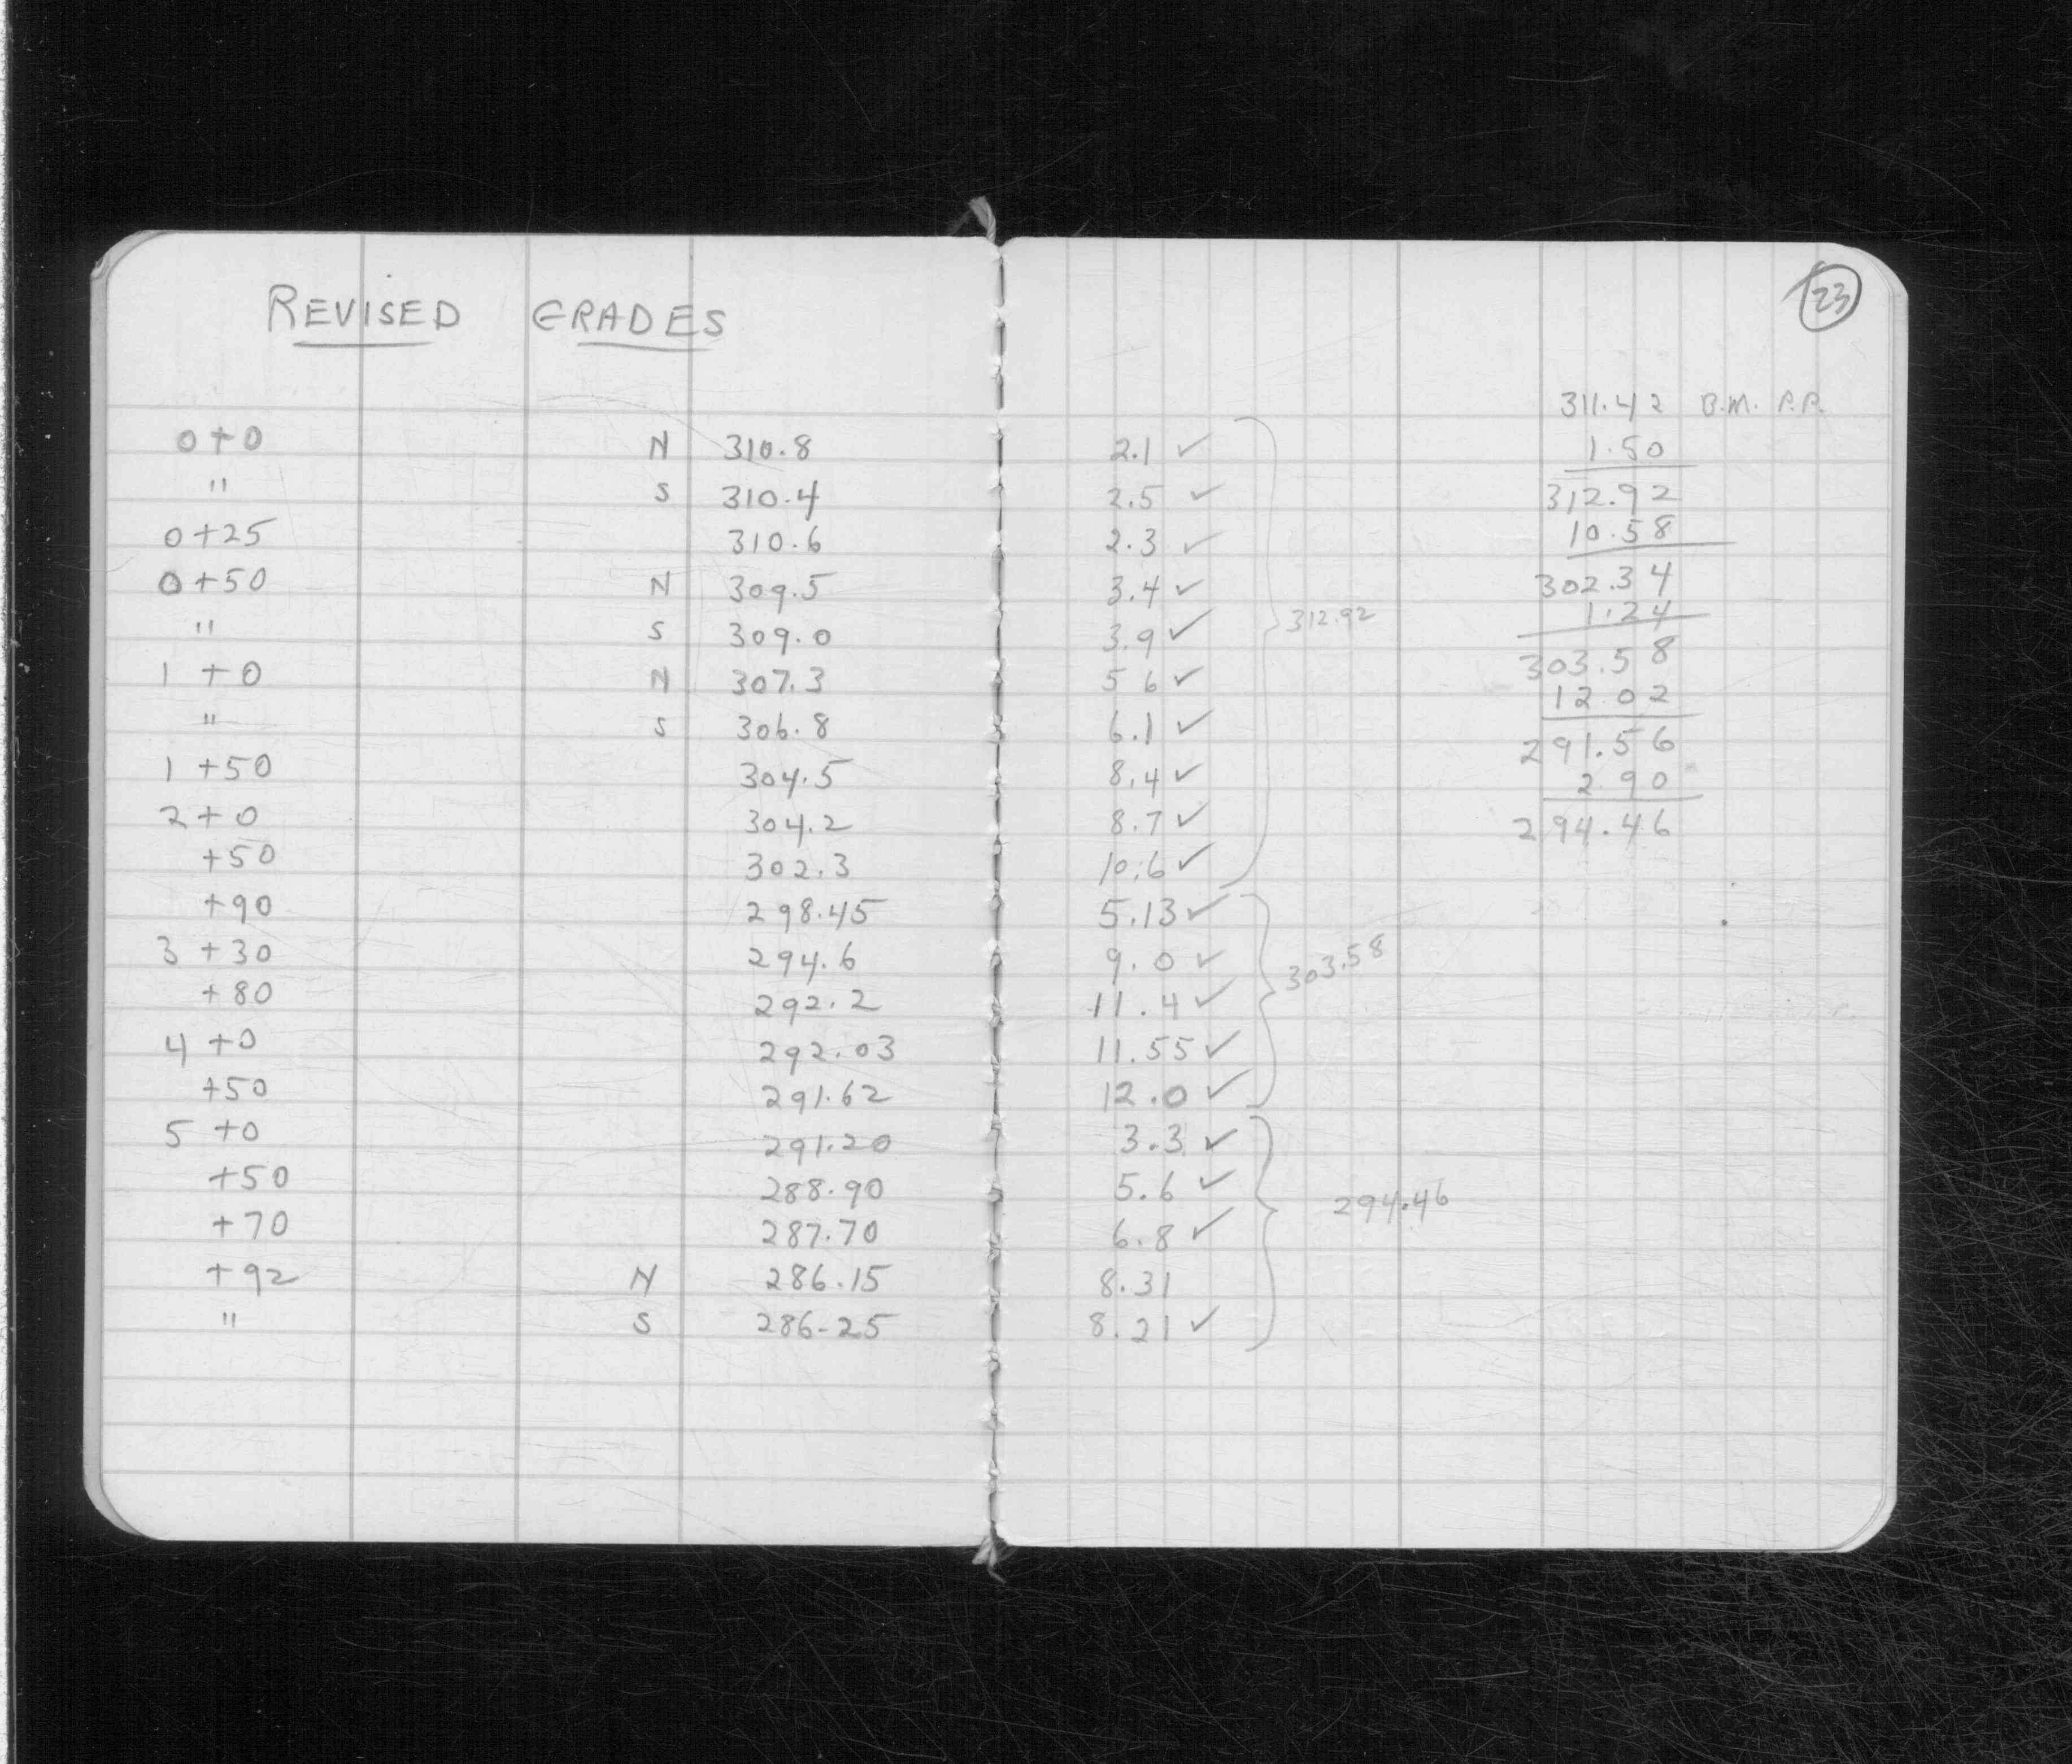 REVISED GRADES
0+0 N 310.8
" S 310.4
0+25 310.6
0+50 N 309.5
" S 309.0
1+0 N 307.3
" S 306.8
1+50 304.5
2+0 304.2
+50 302.3
+90 298.45
3+30 294.6
+80 292.2
4+0 292.03
+50 291.62
5+0 291.20
+50 288.90
+70 287.70
+92 N 286.15
" S 286-25
23
2.1 ✓
2.5 ✓
2.3 ✓
3.4 ✓
3.9 ✓
5 6 ✓
6.1 ✓
8.4 ✓
8.7 ✓
10.6 ✓
312.92
5.13 ✓
9.0 ✓
11.4 ✓
11.55 ✓
12.0 ✓
303.58
3.3 ✓
5.6 ✓
6.8 ✓
8.31
8.21 ✓
294.46
311.42 B.M. P.P.
1.50
312.92
10.58
302.34
1.24
303.58
12 02
291.56
2.90
294.46